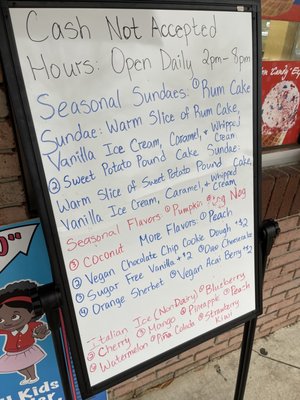 Cash Not Accepted
Hours: Open Daily 2pm-8pm
Seasonal Sundaes: ① Rum Cake
Sundae: Warm Slice of Rum Cake,
Vanilla Ice Cream, Caramel, & Whipped Cream
② Sweet Potato Pound Cake Sundae:
Warm Slice of Sweet Potato Pound Cake,
Vanilla Ice Cream, Caramel, & Whipped Cream
Seasonal Flavors: ① Pumpkin ② Egg Nog
③ Coconut More Flavors ① Peach
② Vegan Chocolate Chip Cookie Dough +$2
③ Sugar Free Vanilla +$2
④ Orange Sherbet Vegan Acai Berry +$2
Italian Ice (Non Dairy) ① Blueberry
② Cherry ③ Mango ④ Pineapple ⑤ Peach
⑥ Watermelon ⑦ Piña Colada ⑧ Strawberry Kiwi